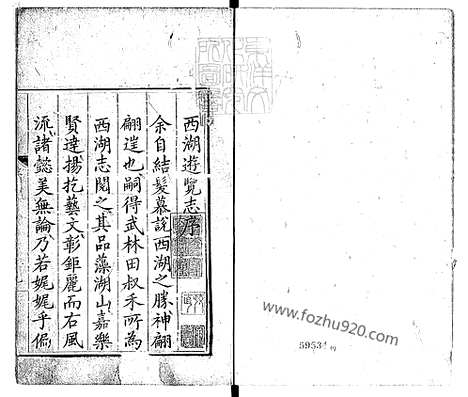 西湖遊覽志序
余自結髮慕說西湖之勝神翩
翩遑也嗣得武林田叔禾所為
西湖志閱之其品藻湖山嘉樂
賢達揚扢藝文彰鉅麗而右風
流諸懿美無論乃若娓娓乎偏
www.fozhu920.com